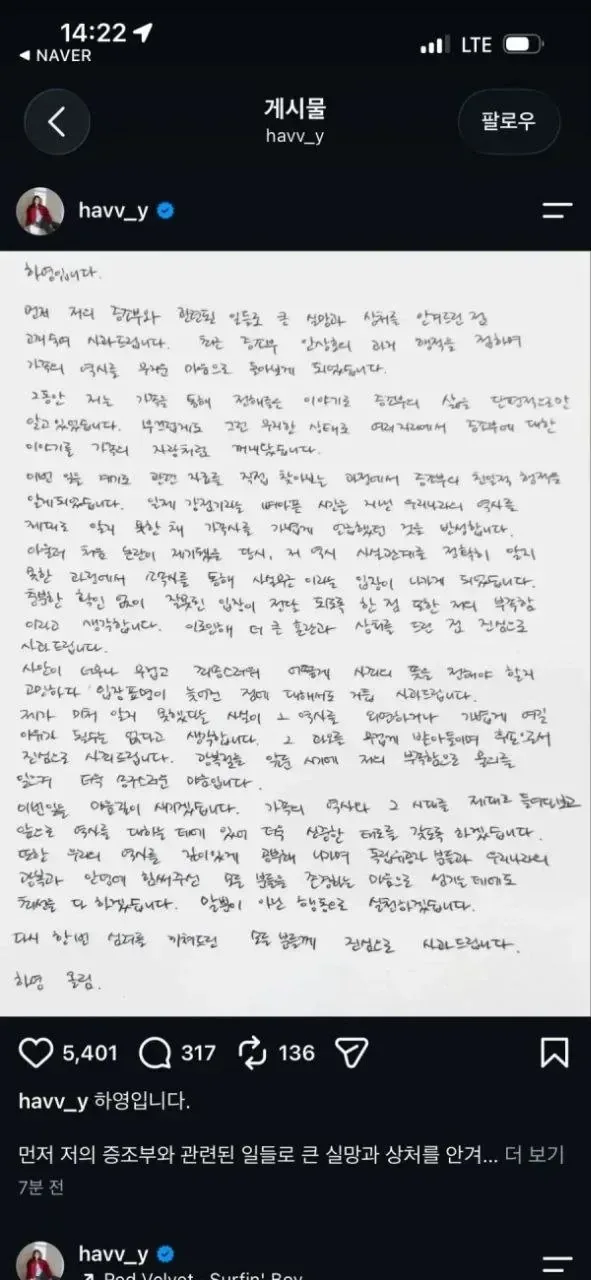 14:22
LTE
◀ NAVER
게시물
havv_y
팔로우
havv_y
하영입니다.
먼저 저의 증조부와 관련된 일들로 큰 실망과 상처를 안겨드린 점
고개숙여 사과드립니다. 최근 증조부 안상호의 과거 행적을 접하며
가족의 역사를 무거운 마음으로 돌아보게 되었습니다.
그동안 저는 가족을 통해 전해들은 이야기로 증조부의 삶을 단편적으로만
알고있었습니다. 부끄럽게도 그런 무지한 상태로 여러자리에서 증조부에 대한
이야기를 가족의 자랑처럼 꺼내왔습니다.
이번 일을 계기로 관련 자료를 직접 찾아보는 과정에서 증조부의 친일적 행적을
알게되었습니다. 일제 강점기라는 뼈아픈 시간을 지낸 우리나라의 역사를
제대로 알지 못한 채 가족사를 가볍게 언급했던 것을 반성합니다.
아울러 처음 논란이 제기됐을 당시, 저 역시 사실관계를 정확히 알지
못한 과정에서 소속사를 통해 사실무근 이라는 입장이 나가게 되었습니다.
충분한 확인 없이 잘못된 입장이 전달 되도록 한 점 또한 저의 부족함
이라고 생각합니다. 이로인해 더 큰 혼란과 상처를 드린 점 진심으로
사과드립니다.
사안이 너무나 무겁고 죄송스러워 어떻게 사죄의 뜻을 전해야 할지
고민하다 입장표명이 늦어진 점에 대해서도 거듭 사과드립니다.
제가 미처 알지 못했다는 사실이 그 역사를 외면하거나 가볍게 여길
이유가 될수는 없다고 생각합니다. 그 과오를 무겁게 받아들이며 후손으로서
진심으로 사죄드립니다. 광복절을 앞둔 시기에 저의 부족함으로 물의를
일으켜 더욱 송구스러운 마음입니다.
이번일을 마음깊이 새기겠습니다. 가족의 역사와 그 시대를 제대로 들여다보고
앞으로 역사를 대하는 데에 있어 더욱 신중한 태도를 갖도록 하겠습니다.
또한 우리의 역사를 깊이있게 공부해 나가며 독립유공자 분들과 우리나라의
광복과 안녕에 힘써주신 모든 분들을 존경하는 마음으로 섬기는 데에도
최선을 다 하겠습니다. 말뿐이 아닌 행동으로 실천하겠습니다.
다시 한번 심려를 끼쳐드린 모든 분들께 진심으로 사과드립니다.
하영 올림.
5,401 317 136
havv_y 하영입니다.
먼저 저의 증조부와 관련된 일들로 큰 실망과 상처를 안겨... 더 보기
7분 전
havv_y
Red Velvet · Surfin' Boy